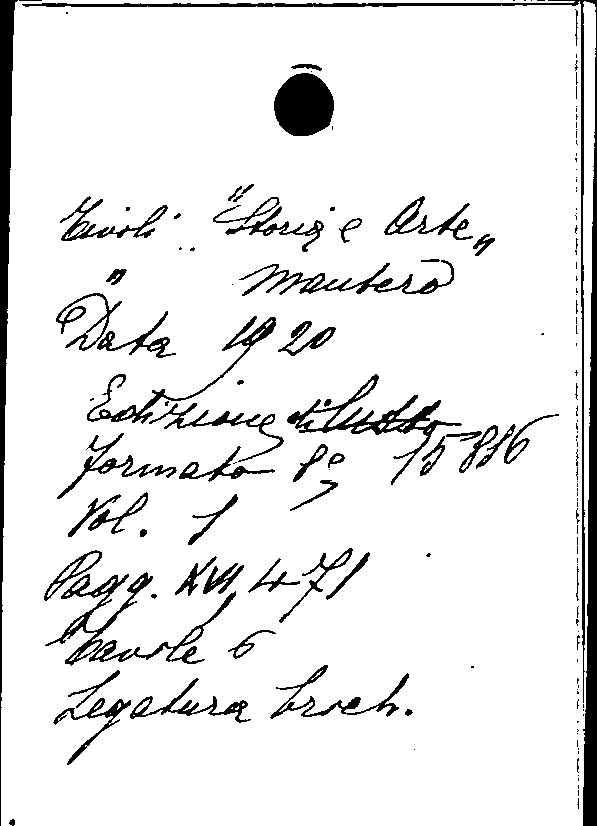 Tivoli. "Storia e Arte"
" Mantero
Data 1920
Edizione di lusso
Formato 8° 15836
Vol. 1
Pagg. XVI, 471
Tavole 6
Legatura broch.